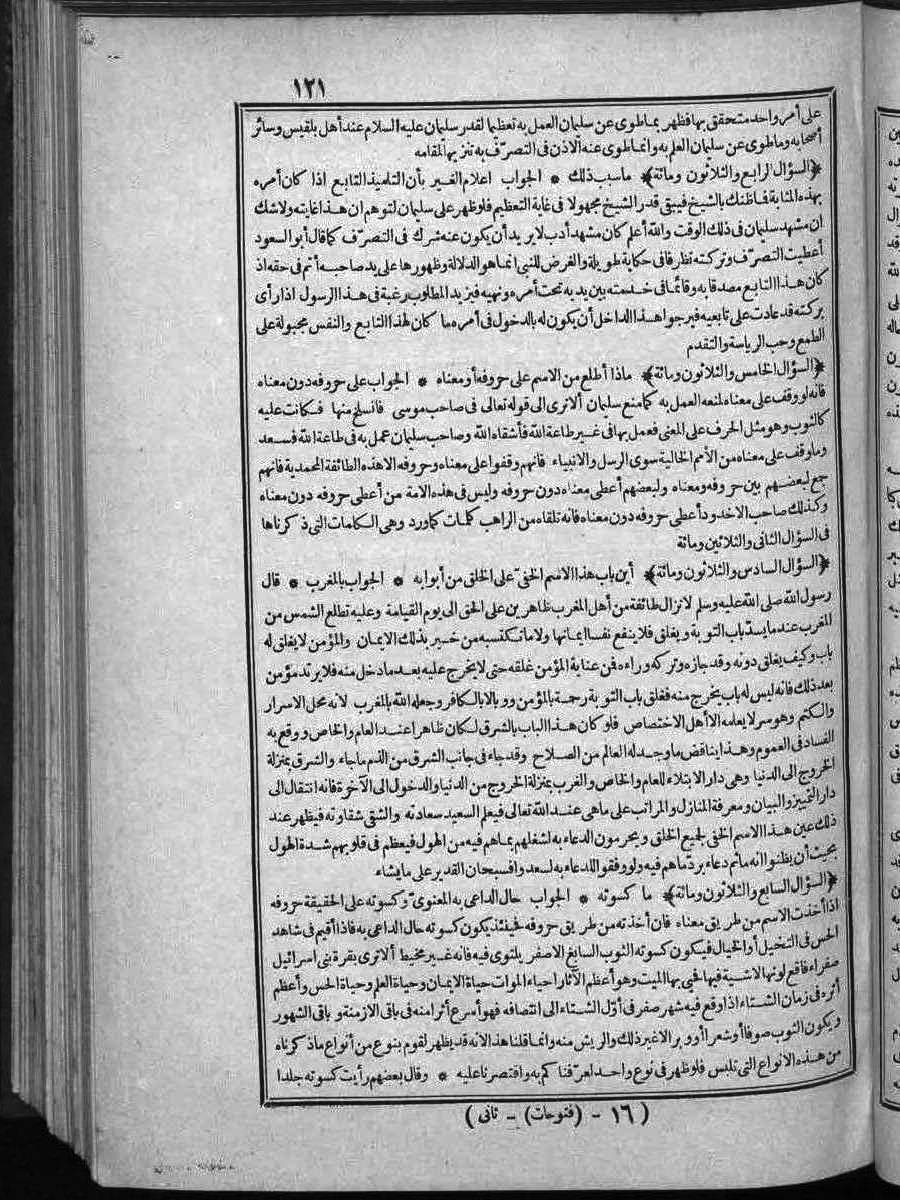 ١٢١
على أمر واحد متحقق بها فظهر بما طوى عن سليمان العمل به تعظيما لقدر سليمان عليه السلام عند أهل بلقيس وسائر
أصحابه وما طوى عن سليمان العلم به وانما طوى عنه الاذن فى التصرّف به تنزيها لمقامه
﴿السؤال الرابع والثلاثون ومائة﴾ ما سبب ذلك * الجواب اعلام الغير بأن التلميذ التابع اذا كان أمره
بهذه المثابة فما ظنك بالشيخ فيبقى قدر الشيخ مجهولا فى غاية التعظيم فلو ظهر على سليمان لتوهم ان هذا غايته ولا شك
ان مشهد سليمان فى ذلك الوقت والله أعلم كان مشهد أدب لا يريد أن يكون عنه شرك فى التصرّف كما قال أبو السعود
أعطيت التصرّف وتركته تظرفا فى حكاية طويلة والغرض للنبى انما هو الدلالة وظهورها على يد صاحبه أتم فى حقه اذ
كان هذا التابع مصدقا به وقائما فى خدمته بين يديه تحت أمره ونهيه فيزيد المطلوب رغبة فى هذا الرسول اذا رأى
بركته قد عادت على تابعيه فيرجو هذا الداخل أن يكون له بالدخول فى أمره ما كان لهذا التابع والنفس مجبولة على
الطمع وحب الرياسة والتقدم
﴿السؤال الخامس والثلاثون ومائة﴾ ماذا أطلع من الاسم على حروفه أو معناه * الجواب على حروفه دون معناه
فانه لو وقف على معناه لمنعه العمل به كما منع سليمان ألا ترى الى قوله تعالى فى صاحب موسى فانسلخ منها فكانت عليه
كالثوب وهو مثل الحرف على المعنى فعمل بها فى غير طاعة الله فأشقاه الله وصاحب سليمان عمل به فى طاعة الله فسعد
وما وقف على معناه من الأمم الخالية سوى الرسل والانبياء فانهم وقفوا على معناه وحروفه الا هذه الطائفة المحمدية فانهم
جمع لبعضهم بين حروفه ومعناه ولبعضهم أعطى معناه دون حروفه وليس فى هذه الامة من أعطى حروفه دون معناه
وكذلك صاحب الاخدود أعطى حروفه دون معناه فانه تلقاه من الراهب كلمات كما ورد وهى الكلمات التى ذكرناها
فى السؤال الثانى والثلاثين ومائة
﴿السؤال السادس والثلاثون ومائة﴾ أين باب هذا الاسم الخفىّ على الخلق من أبوابه * الجواب بالمغرب * قال
رسول الله صلى الله عليه وسلم لا تزال طائفة من أهل المغرب ظاهرين على الحق الى يوم القيامة وعليه تطلع الشمس من
المغرب عند ما يسدّ باب التوبة ويغلق فلا ينفع نفسا ايمانها ولا ما تكتسبه من خير بذلك الايمان والمؤمن لا يغلق له
باب وكيف يغلق دونه وقد جازه وتركه وراءه فمن عناية المؤمن غلقه حتى لا يخرج عليه بعد ما دخل منه فلا يرتد مؤمن
بعد ذلك فانه ليس له باب يخرج منه فغلق باب التوبة رحمة بالمؤمن ووبالا بالكافر وجعله الله بالمغرب لانه محل الاسرار
والكتم وهو سر لا يعلمه الا أهل الاختصاص فلو كان هذا الباب بالشرق لكان ظاهرا عند العام والخاص ووقع به
الفساد فى العموم وهذا يناقض ما وجد له العالم من الصلاح وقد جاء فى جانب الشرق من الذم ما جاء والشرق بمنزلة
الخروج الى الدنيا وهى دار الابتلاء للعام والخاص والغرب بمنزلة الخروج من الدنيا والدخول الى الآخرة فانه انتقال الى
دار التمييز والبيان ومعرفة المنازل والمراتب على ما هى عند الله تعالى فيعلم السعيد سعادته والشقى شقاوته فيظهر عند
ذلك عين هذا الاسم الخفى لجميع الخلق ويحرمون الدعاء به لشغلهم بما هم فيه من الهول فيعظم فى قلوبهم شدة الهول
بحيث أن يظنوا انه ما ثم دعاء يردّ ما هم فيه ولو وفقوا للدعاء به لسعدوا فسبحان القدير على ما يشاء
﴿السؤال السابع والثلاثون ومائة﴾ ما كسوته * الجواب حال الداعى به المعنوىّ وكسوته على الحقيقة حروفه
اذا أخذت الاسم من طريق معناه فان أخذته من طريق حروفه فحينئذ يكون كسوته حال الداعى به فاذا أقيم فى شاهد
الحس فى التخيل أو الخيال فيكون كسوته الثوب السابغ الاصفر يلتوى فيه فانه غير مخيط ألا ترى بقرة بنى اسرائيل
صفراء فاقع لونها لاشية فيها فحيى بها الميت وهو أعظم الآثار احياء الموات حياة الايمان وحياة العلم وحياة الحس وأعظم
أثره فى زمان الشتاء اذا وقع فيه شهر صفر فى أوّل الشتاء الى انتصافه فهو أسرع أثرا منه فى باقى الازمنة وباقى الشهور
ويكون الثوب صوفا أو شعرا أو وبرا لا غير ذلك والريش منه وانما قلنا هذا لانه قد يظهر لقوم بنوع من أنواع ما ذكرناه
من هذه الانواع التى تلبس فلو ظهر فى نوع واحد لعرّفنا كم به واقتصرنا عليه * وقال بعضهم رأيت كسوته جلدا
( ١٦ - (فتوحات) - ثانى )